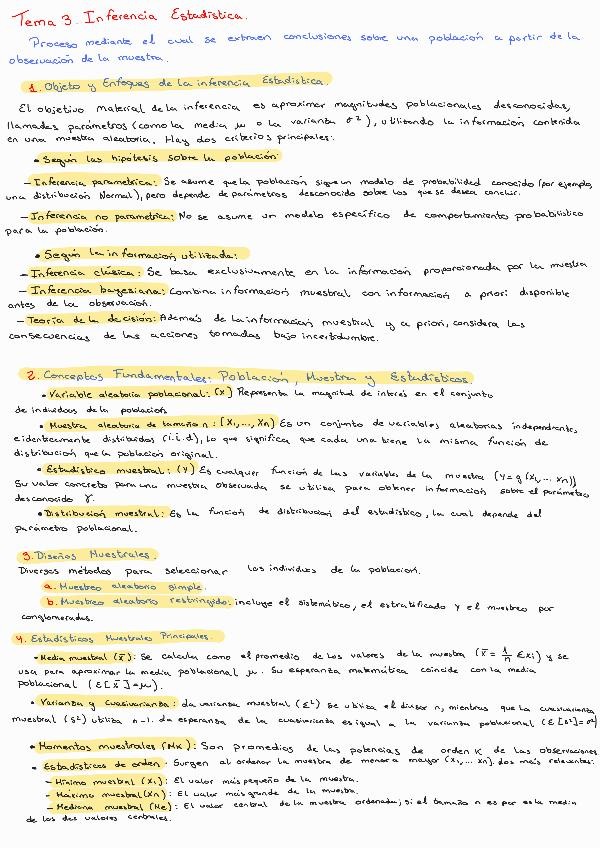 Tema 3. Inferencia Estadística.
Proceso mediante el cual se extraen conclusiones sobre una población a partir de la
observación de la muestra.
1. Objeto y Enfoques de la inferencia Estadística.
El objetivo material de la inferencia es aproximar magnitudes poblacionales desconocidas,
llamadas parámetros (como la media μ o la varianza σ²), utilizando la información contenida
en una muestra aleatoria. Hay dos criterios principales:
• Según las hipótesis sobre la población
– Inferencia paramétrica: Se asume que la población sigue un modelo de probabilidad conocido (por ejemplo,
una distribución Normal), pero depende de parámetros desconocido sobre los que se desea concluir.
– Inferencia no parametrica: No se asume un modelo específico de comportamiento probabilístico
para la población.
• Según la información utilizada:
– Inferencia clásica: Se basa exclusivamente en la información proporcionada por la muestra
– Inferencia bayesiana: Combina información muestral con información a priori disponible
antes de la observación.
– Teoría de la decisión: Además de la información muestral y a priori, considera las
consecuencias de las acciones tomadas bajo incertidumbre.
2. Conceptos Fundamentales: Población, Muestra y Estadísticos.
• Variable aleatoria poblacional: (X) Representa la magnitud de interés en el conjunto
de individuos de la población
• Muestra aleatoria de tamaño n: (X₁,..., Xn) Es un conjunto de variables aleatorias independientes,
e identicamente distribuidas (i.i.d), lo que significa que cada una tiene la misma función de
distribución que la población original.
• Estadístico muestral: (Y) Es cualquier función de las variables de la muestra (Y=g(X₁,... Xn))
Su valor concreto para una muestra observada se utiliza para obtener información sobre el parámetro
desconocido γ.
• Distribución muestral: Es la función de distribución del estadístico, la cual depende del
parámetro poblacional.
3. Diseños Muestrales.
Diversos métodos para seleccionar los individuos de la población.
a. Muestreo aleatorio simple.
b. Muestreo aleatorio restringido: incluye el sistemático, el estratificado y el muestreo por
conglomerados.
4. Estadísticos Muestrales Principales.
• Media muestral (x̄): Se calcula como el promedio de los valores de la muestra (x̄ = 1/n Σxi) y se
usa para aproximar la media poblacional μ. Su esperanza matemática coincide con la media
poblacional (E[x̄]=μ).
• Varianza y cuasivarianza: La varianza muestral (Σ²) se utiliza el divisor n, mientras que la cuasivarianza
muestral (S²) utiliza n-1. La esperanza de la cuasivarianza es igual a la varianza poblacional (E[S²]=σ²)
• Momentos muestrales (Mk): Son promedios de las potencias de orden K de las observaciones
• Estadísticos de orden: Surgen al ordenar la muestra de menor a mayor (X₁,... Xn). Los más relevantes:
– Mínimo muestral (X₁): El valor más pequeño de la muestra.
– Máximo muestral (Xn): El valor más grande de la muestra.
– Mediana muestral (Me): El valor central de la muestra ordenada; si el tamaño n es par es la media
de los dos valores centrales.